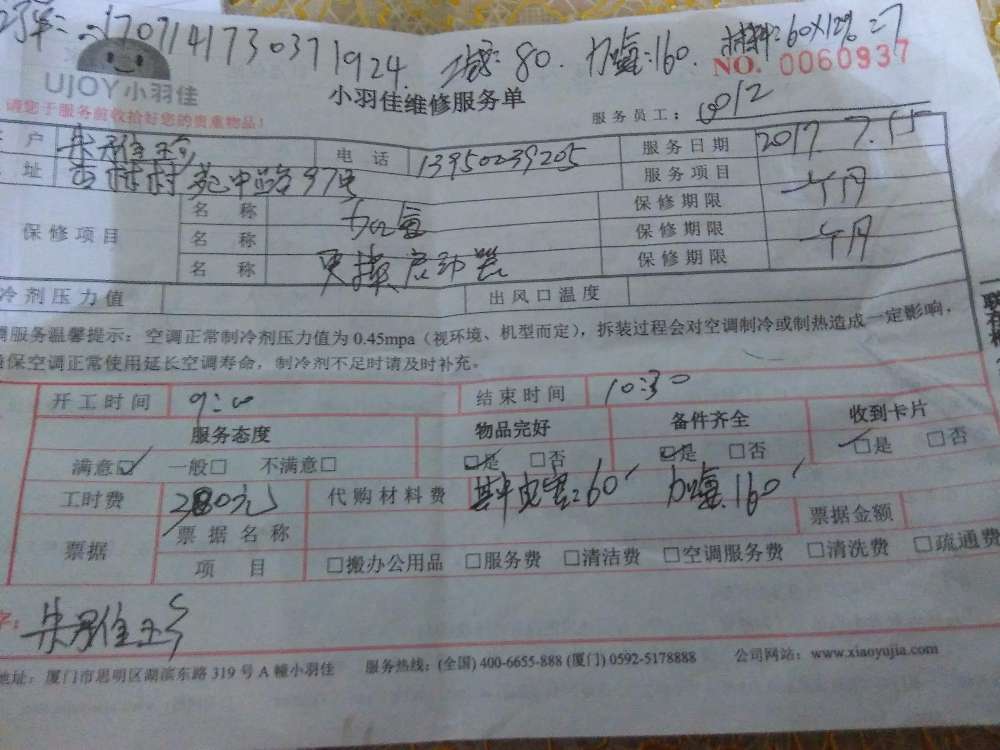 170714173037 1924. 减:80. 加氟:160. 材料:60×12%=7
UJOY小羽佳
NO. 0060937
小羽佳维修服务单
请您于服务前收拾好您的贵重物品!
服务员工: 0012
户 电话 13950239205 服务日期 2017 7.15
址 村 苑中路97号 服务项目
保修项目 名称 加氟 保修期限 一个月
名称 保修期限
名称 更换启动器 保修期限 一个月
冷剂压力值 出风口温度
调服务温馨提示:空调正常制冷剂压力值为0.45mpa(视环境、机型而定),拆装过程会对空调制冷或制热造成一定影响,
保空调正常使用延长空调寿命,制冷剂不足时请及时补充。
开工时间 9:00 结束时间 10:30
服务态度 物品完好 备件齐全 收到卡片
满意☑ 一般□ 不满意□ ☑是 □否 ☑是 □否 ☑是 □否
工时费 元 代购材料费 其中 :60 加氟.160 票据金额
票据 票据名称
项目 □搬办公用品 □服务费 □清洁费 □空调服务费 □清洗费 □疏通费
字:
地址:厦门市思明区湖滨东路319号A幢小羽佳 服务热线:(全国)400-6655-888(厦门)0592-5178888 公司网站:www.xiaoyujia.com